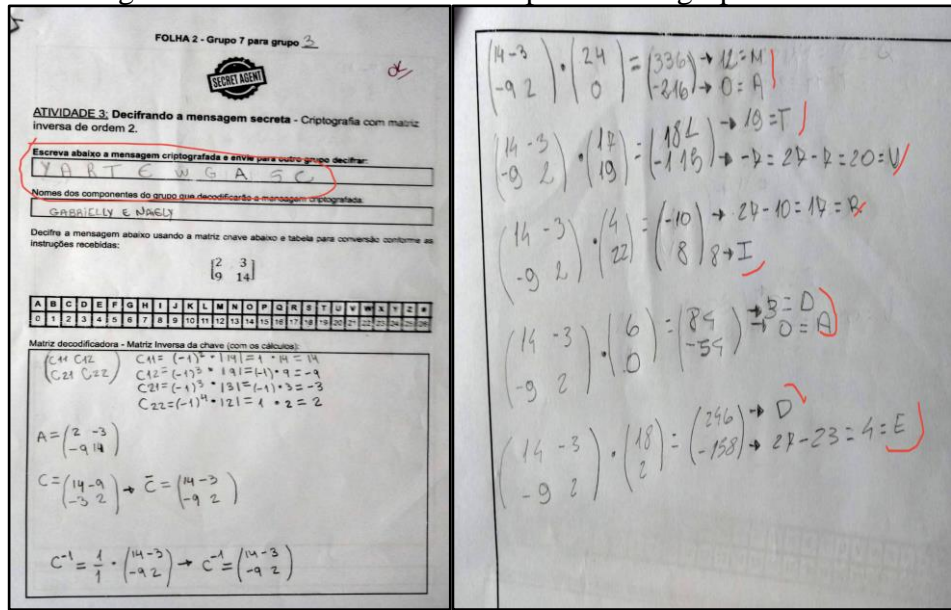 FOLHA 2 - Grupo 7 para grupo 3
SECRET AGENT
ok
ATIVIDADE 3: Decifrando a mensagem secreta - Criptografia com matriz
inversa de ordem 2.
Escreva abaixo a mensagem criptografada e envie para outro grupo decifrar:
Y A R T E W G A S C
Nomes dos componentes do grupo que decodificarão a mensagem criptografada:
GABRIELLY E NAELY
Decifre a mensagem abaixo usando a matriz chave abaixo e tabela para conversão conforme as
instruções recebidas:
[2 3]
[9 14]
A B C D E F G H I J K L M N O P Q R S T U V W X Y Z *
0 1 2 3 4 5 6 7 8 9 10 11 12 13 14 15 16 17 18 19 20 21 22 23 24 25 26
Matriz decodificadora - Matriz Inversa da chave (com os cálculos):
(C11 C12) C11 = (-1)² • |14| = 1 • 14 = 14
(C21 C22) C12 = (-1)³ • |9| = (-1) • 9 = -9
C21 = (-1)³ • |3| = (-1) • 3 = -3
C22 = (-1)⁴ • |2| = 1 • 2 = 2
A = (2 -3)
(-9 14)
C = (14 -9) → C̄ = (14 -3)
(-3 2) (-9 2)
C⁻¹ = 1/1 • (14 -3) → C⁻¹ = (14 -3)
(-9 2) (-9 2)
(14 -3) • (24) = (336) → 12 = M
(-9 2) (0) (-216) → 0 = A
(14 -3) • (17) = (181) → 19 = T
(-9 2) (19) (-115) → -7 = 27 - 7 = 20 = U
(14 -3) • (4) = (-10) → 27 - 10 = 17 = R
(-9 2) (22) (8) 8 → I
(14 -3) • (6) = (84) → 3 = D
(-9 2) (0) (-54) → 0 = A
(14 -3) • (18) = (246) → D
(-9 2) (2) (-158) → 27 - 23 = 4 = E